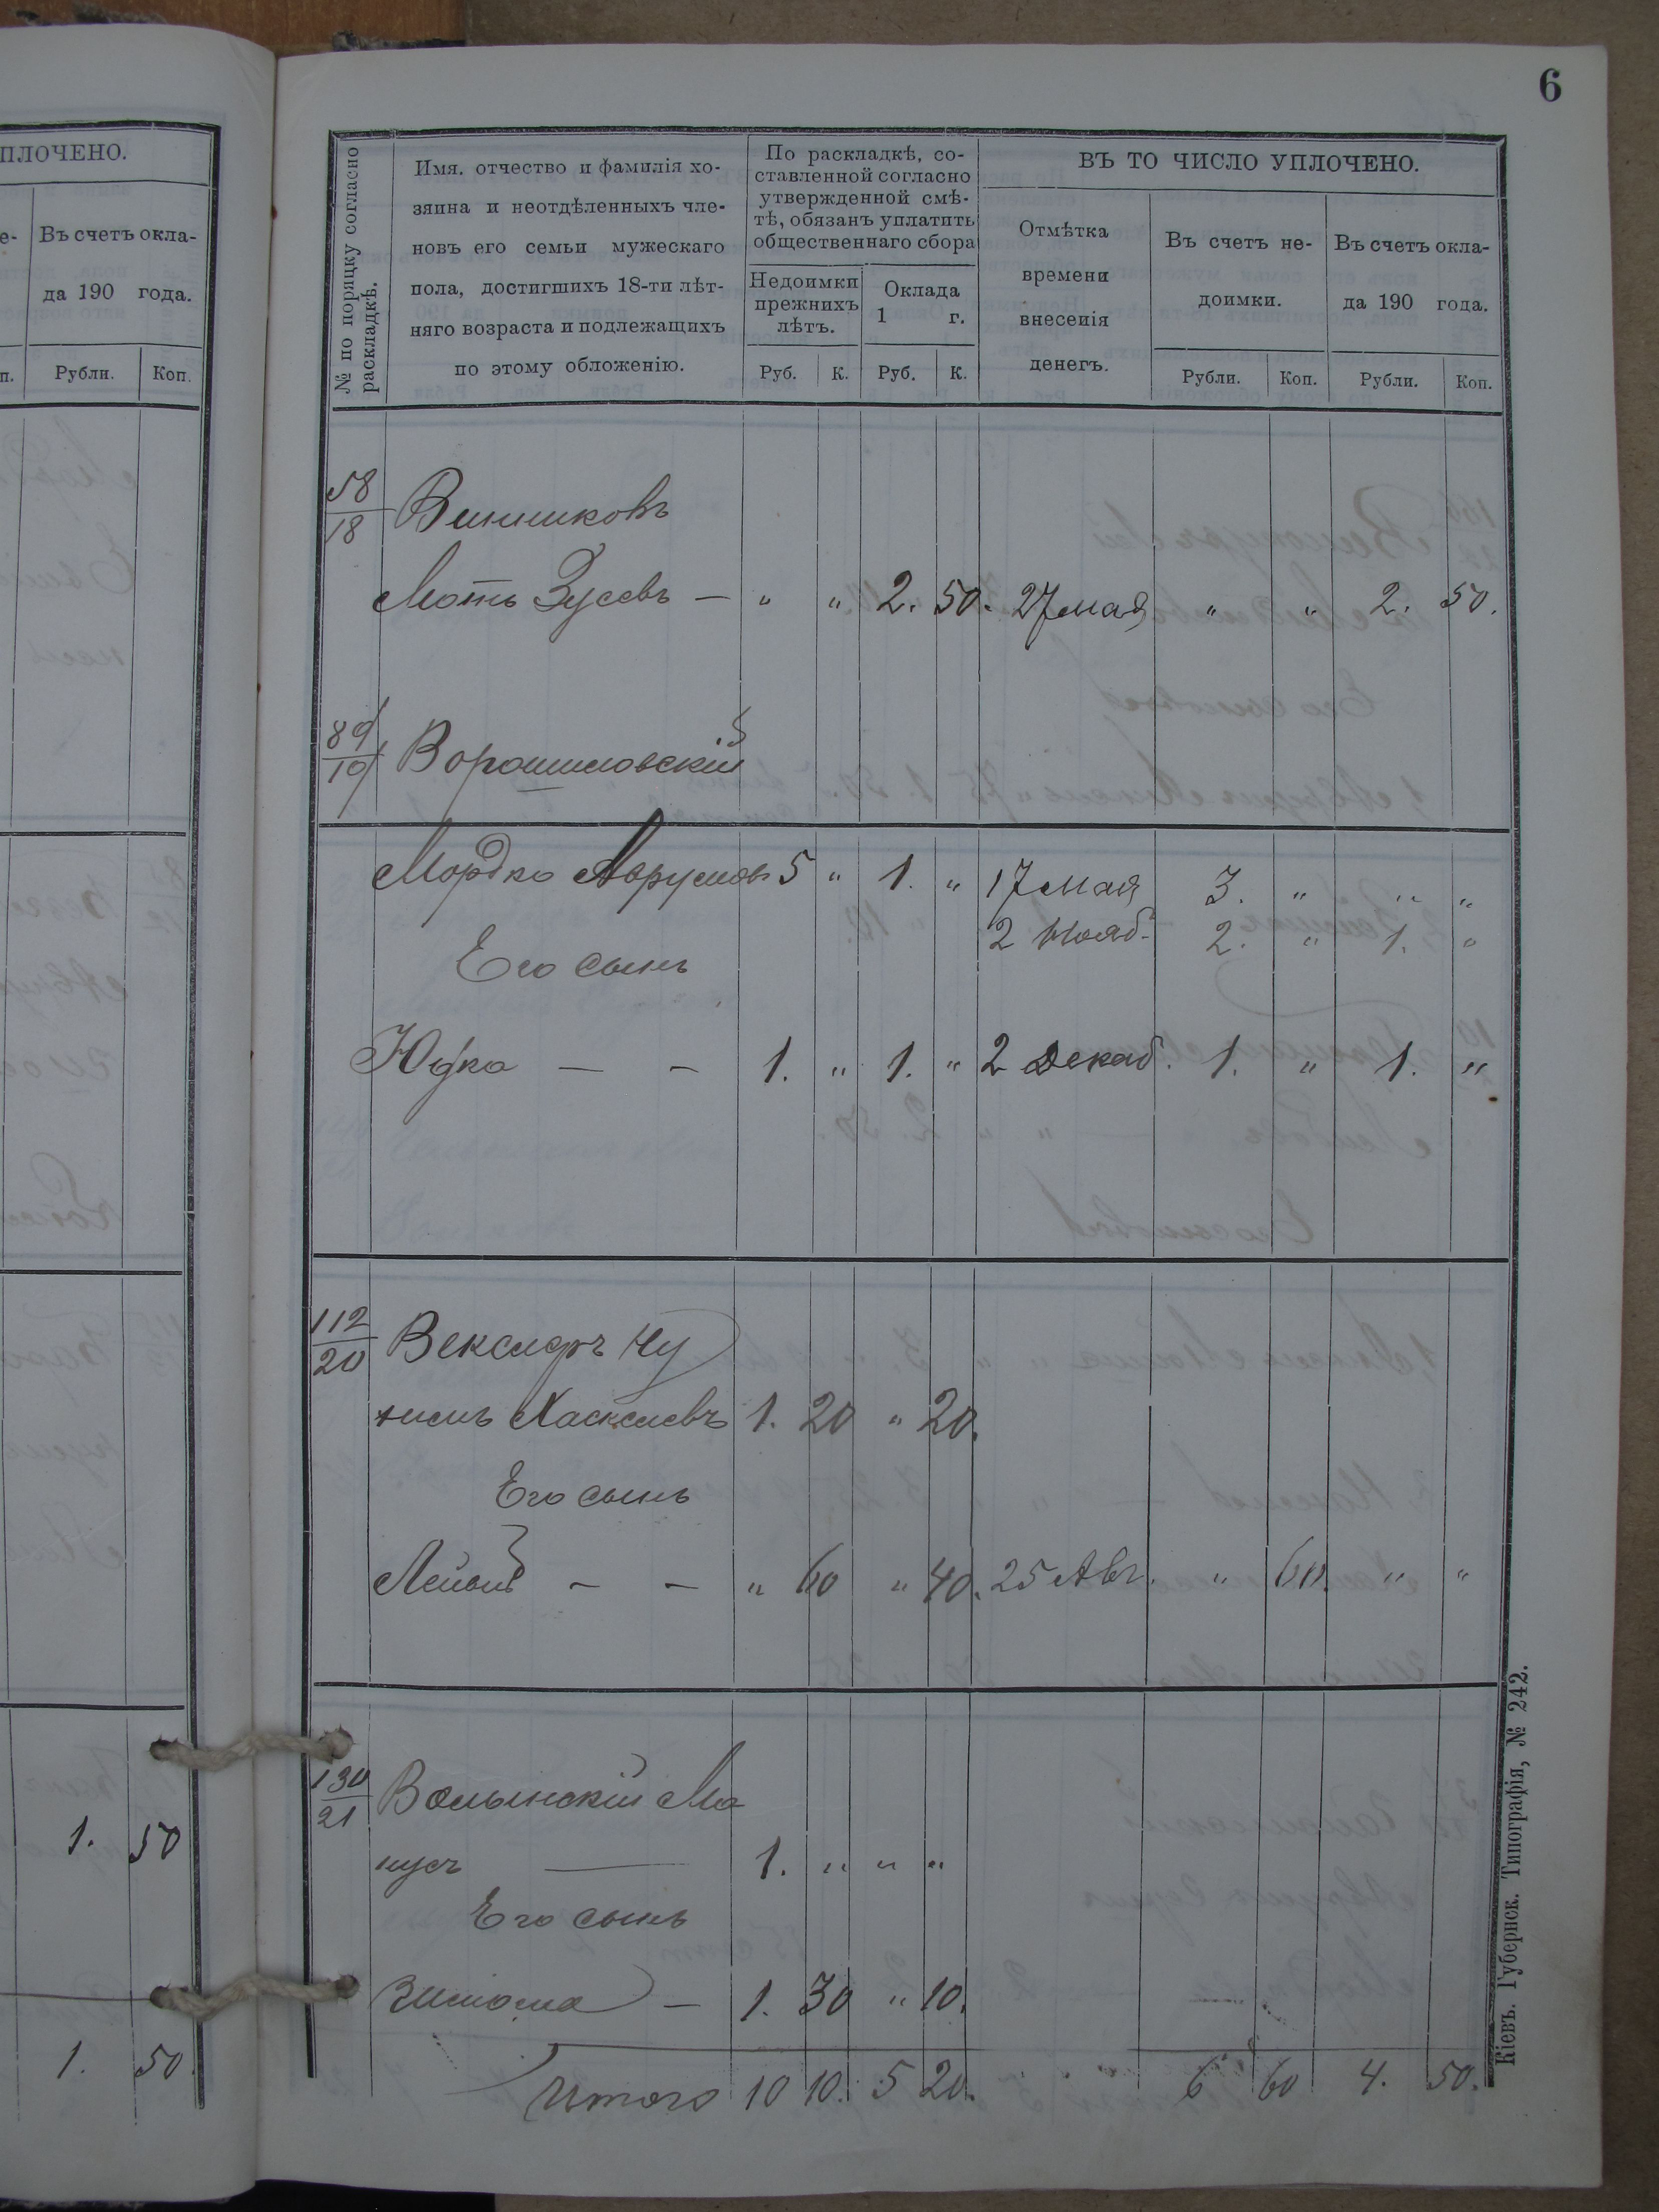 6
ПЛОЧЕНО.
Въ счетъ окла-
да 190 года.
Рубли. Коп.
1. 50
1. 50.
№ по порядку согласно
раскладкѣ.
Имя, отчество и фамилія хо-
зяина и неотдѣленныхъ чле-
новъ его семьи мужескаго
пола, достигшихъ 18-ти лѣт-
няго возраста и подлежащихъ
по этому обложенію.
По раскладкѣ, со-
ставленной согласно
утвержденной смѣ-
тѣ, обязанъ уплатить
общественнаго сбора
Недоимки
прежнихъ
лѣтъ.
Руб. К.
Оклада
1 г.
Руб. К.
ВЪ ТО ЧИСЛО УПЛОЧЕНО.
Отмѣтка
времени
внесенія
денегъ.
Въ счетъ не-
доимки.
Рубли. Коп.
Въ счетъ окла-
да 190 года.
Рубли. Коп.
58/18 Винниковъ
Моть Зусевъ — " " 2. 50. 27 мая " " 2. 50.
89/19 Ворошиловскій
Мордко Аврумовъ 5 " 1. " 17 мая 3. " " "
2 Нояб. 2. " 1. "
Его сынъ
Юдка — — 1. " 1. " 2 Декаб. 1. " 1. "
112/20 Векслеръ Ну
химъ Хаскелевъ 1. 20 " 20.
Его сынъ
Лейба — — " 60 " 40. 25 Авг. " 60. " "
130/21 Волынскій Ма
нусъ — 1. " " "
Его сынъ
Зишома — 1. 30 " 10.
Итого 10 10. 5 20. 6 60 4. 50.
Кіевъ. Губернск. Типографія, № 242.